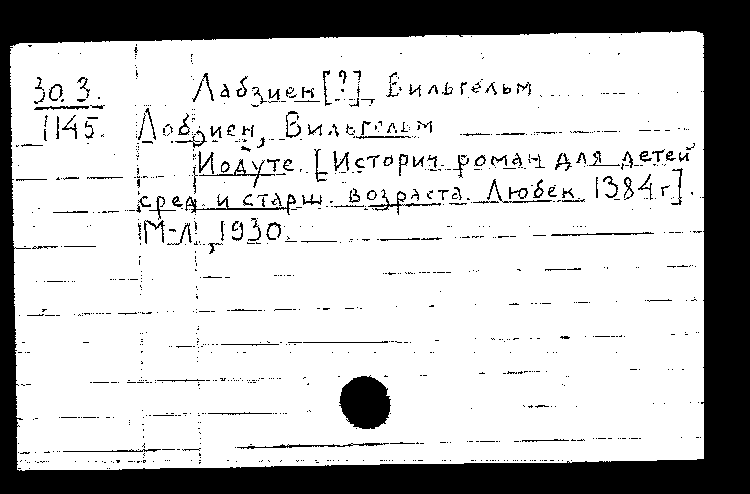 30.3.
1145.
Лабзиен [?], Вильгельм
Лобзиен, Вильгельм
Иодуте. [Историч. роман для детей
сред. и старш. возраста. Любек 1384 г].
М-Л, 1930.